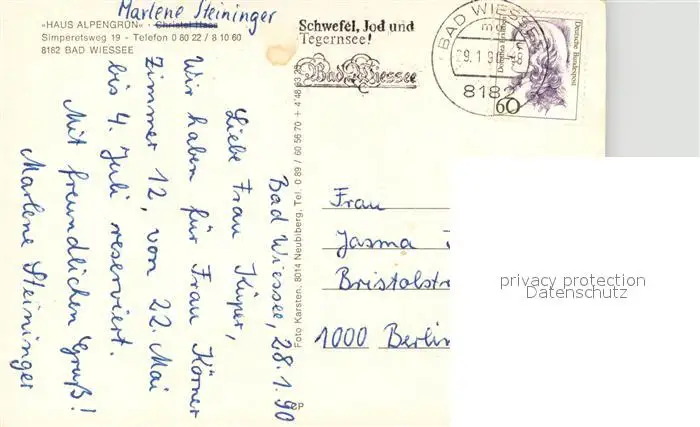 Marlene Steininger
»HAUS ALPENGRÜN« · Christel Haas
Simperetsweg 19 - Telefon 0 80 22 / 8 10 60
8182 BAD WIESSEE
Bad Wiessee, 28.1.90
Liebe Frau Küper,
Wir haben für Frau Körner
Zimmer 12, von 22. Mai
bis 4. Juli reserviert.
Mit freundlichen Gruß!
Marlene Steininger
Foto Karsten, 8014 Neubiberg, Tel. 0 89 / 60 56 70 + 4 48 63 25
Schwefel, Jod und
Tegernsee!
Bad Wiessee
BAD WIESSEE
8182
Deutsche Bundespost
60
Frau
Jasma
Bristolstr
1000 Berlin
privacy protection
Datenschutz